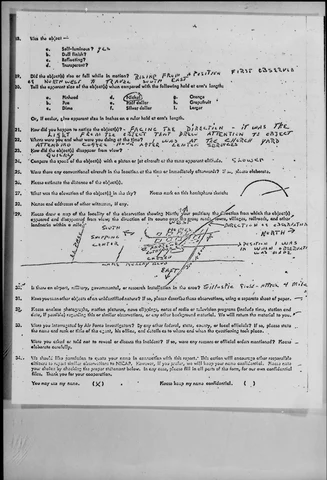 18. Was the object —
a. Self-luminous? YES
b. Dull finish?
c. Reflecting?
d. Transparent?
19. Did the object(s) rise or fall while in motion? RISING FROM A POSITION FIRST OBSERVED
OF NORTHWEST & TRAVEL SOUTH EAST
20. Tell the apparent size of the object(s) when compared with the following held at arm's length:
a. Pinhead d. Nickel g. Orange
b. Pea e. Half dollar h. Grapefruit
c. Dime f. Silver dollar i. Larger
Or, if easier, give apparent size in inches on a ruler held at arm's length.
21. How did you happen to notice the object(s)? FACING THE DIRECTION & IT WAS THE
LIGHT FROM THE OBJECT THAT DREW ATTENTION TO OBJECT
Where were you and what were you doing at the time? I WAS AT THE CHURCH YARD
How did the object(s) disappear from view?
QUICKLY
Compare the speed of the object(s) with a piston or jet aircraft at the same apparent altitude. SLOWER
Were there any conventional aircraft in the location at the time or immediately afterwards? If so, please elaborate.
Please estimate the distance of the object(s).
What was the elevation of the object(s) in the sky? Please mark on this hemisphere sketch:
Names and addresses of other witnesses, if any.
29. Please draw a map of the locality of the observation showing North; your position; the direction from which the object(s)
appeared and disappeared from view; the direction of its course over the area; roads, towns, villages, railroads, and other
landmarks within a mile.
SOUTH
SHOPPING
CENTER
DIRECTION OF OBSERVATION
NORTH →
DIRECTION I WAS
IN WHEN OBSERVATION
WAS MADE
EAST
Is there an airport, military, governmental, or research installation in the area?
31. Have you seen other objects of an unidentified nature? If so, please describe these observations, using a separate sheet of paper.
Please enclose photographs, motion pictures, news clippings, notes of radio or television programs (include time, station and
date, if possible) regarding this or similar observations, or any other background material. We will return the material to you.
Were you interrogated by Air Force investigators? By any other federal, state, county, or local officials? If so, please state
the name and rank or title of the agent, his office, and details as to where and when the questioning took place.
Were you asked or told not to reveal or discuss the incident? If so, were any reasons or official orders mentioned? Please
elaborate carefully.
34. We should like permission to quote your name in connection with this report. This action will encourage other responsible
citizens to report similar observations to NICAP. However, if you prefer, we will keep your name confidential. Please note
your choice by checking the proper statement below. In any case, please fill in all parts of the form, for our own confidential
files. Thank you for your cooperation.
You may use my name. (X) Please keep my name confidential. ( )